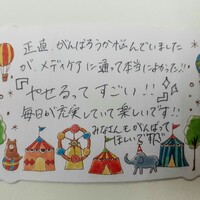 正直、がんばろうか悩んでいました
が、メディケアに通って本当によかった!!
『やせるってすごい!!』
毎日が充実していて楽しいです!!
みなさんもがんばって
ほしいです